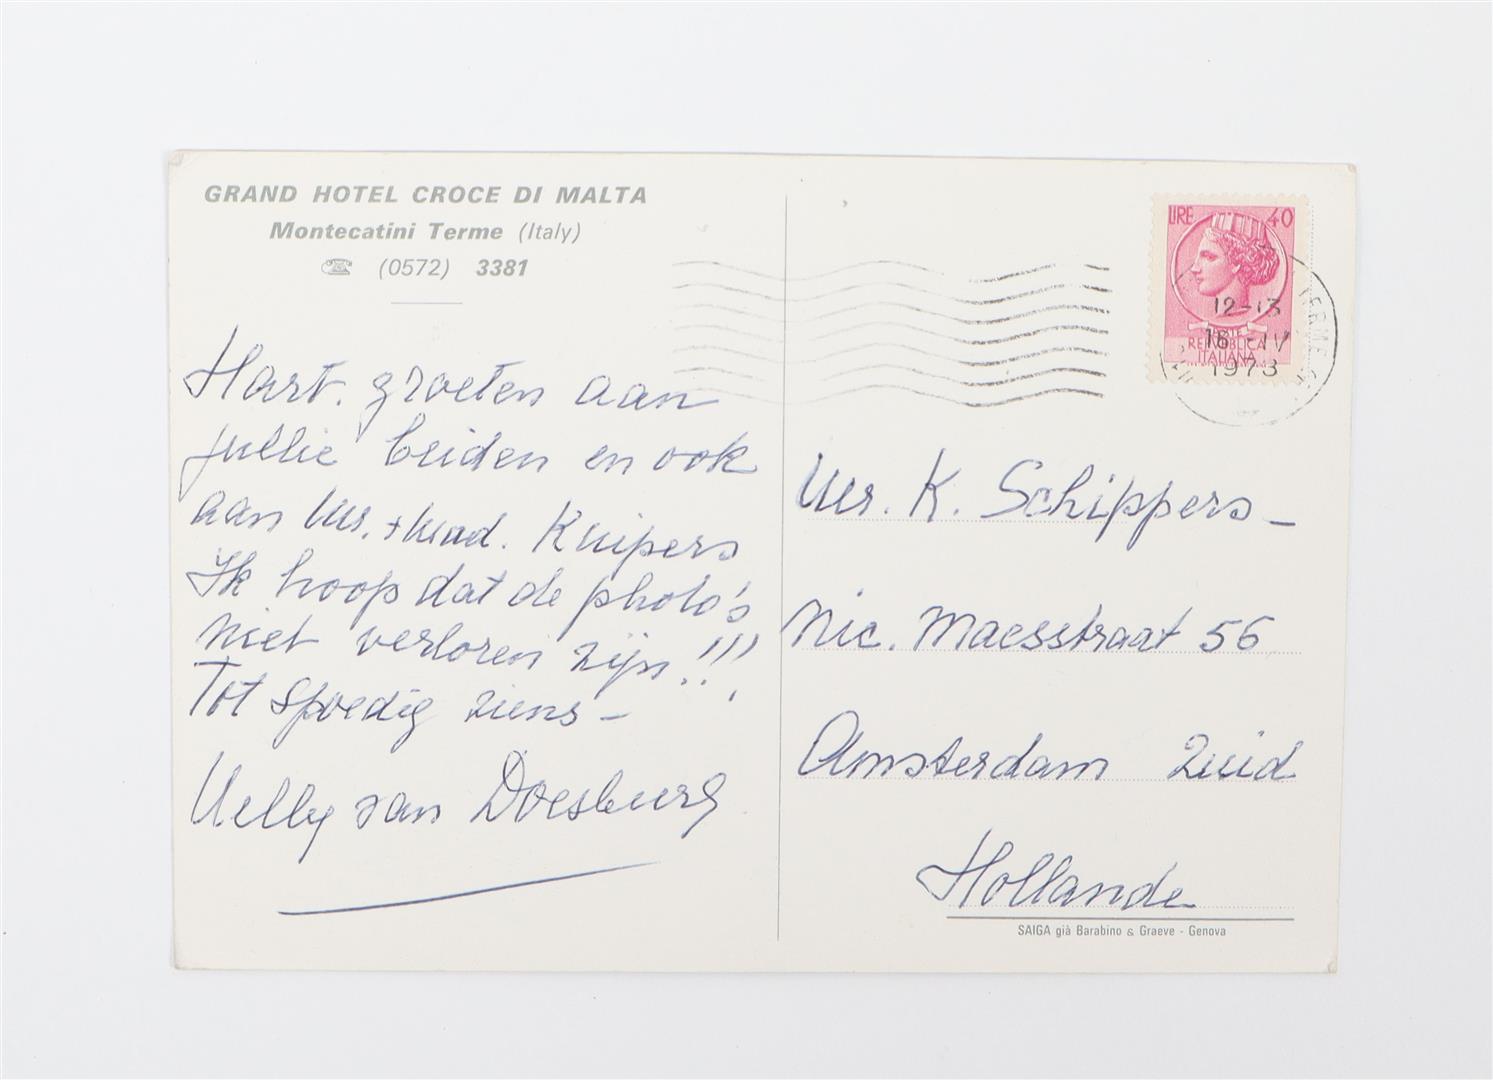 GRAND HOTEL CROCE DI MALTA
Montecatini Terme (Italy)
(0572) 3381
Hart. groeten aan
jullie beiden en ook
aan Mr. + Mad. Kuipers
Ik hoop dat de photo's
niet verloren zijn!!!
Tot spoedig ziens –
Nelly van Doesburg
LIRE 40
REPUBBLICA
ITALIANA
12-13
16-IV
1973
TERME
Mr. K. Schippers –
Nic. Maesstraat 56
Amsterdam Zuid
Hollande
SAIGA già Barabino & Graeve - Genova